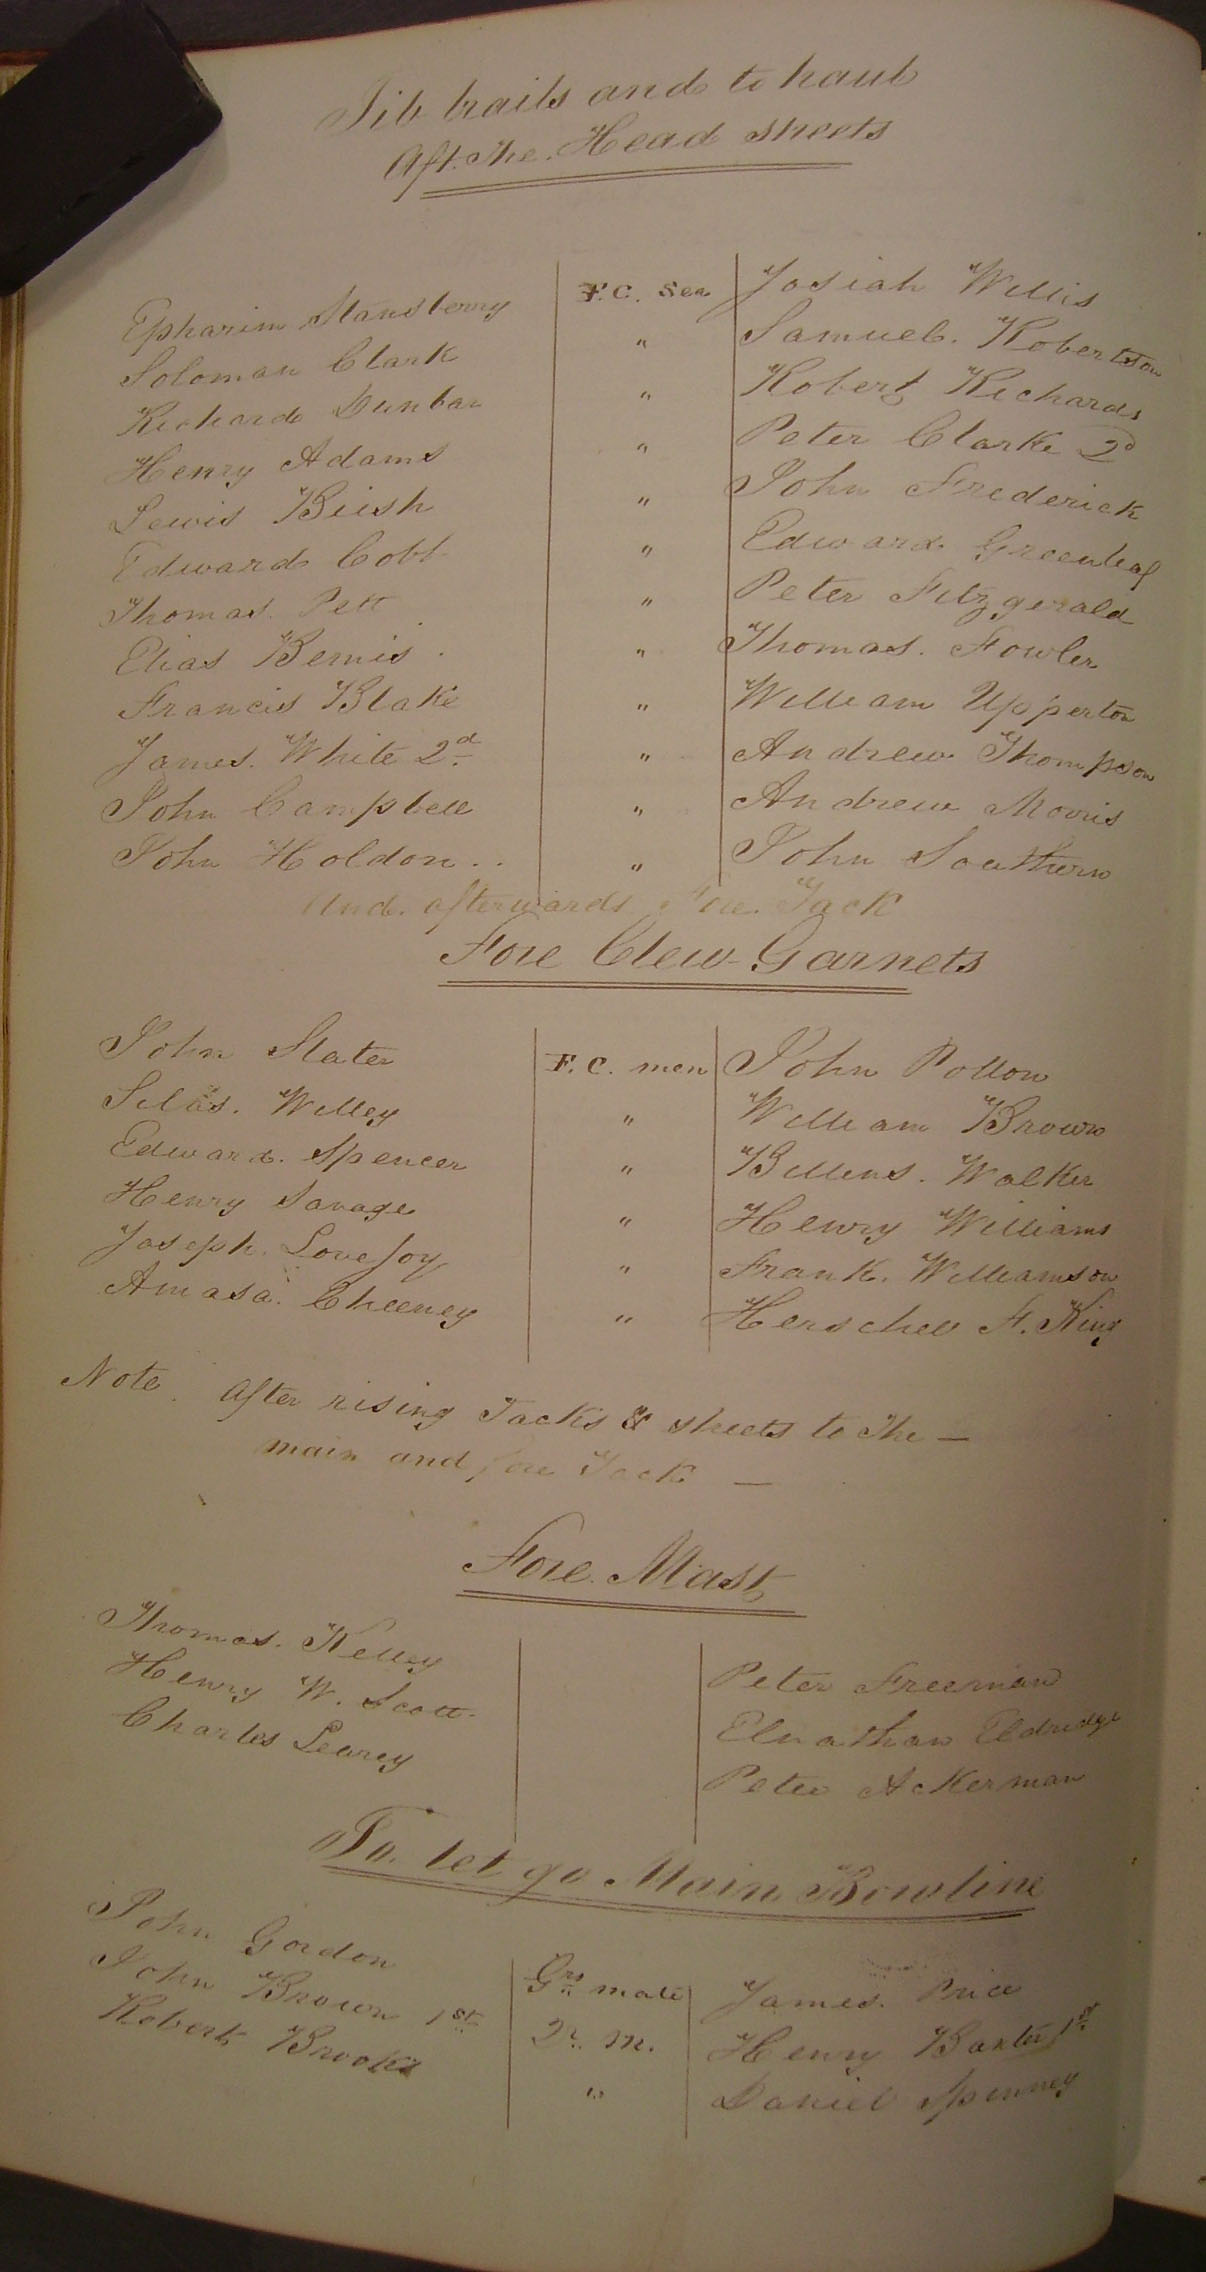 Jib brails and to haul
Aft. The. Head sheets
Epharim Mansberry F.C. Sea Josiah Willis
Soloman Clark " Samuel. Robertson
Richard Dunbar " Robert Richards
Henry Adams " Peter Clarke 2d
Lewis Bush " John Frederick
Edward Cobb " Edward Greenleaf
Thomas. Pett " Peter Fitzgerald
Elias Bemis . " Thomas. Fowler
Francis Blake " William Upperton
James. White 2d. " Andrew Thompson
John Campbell " Andrew Morris
John Holdon .. " John Southern
And. afterwards Fore. Tack
Fore Clew Garnets
John Slater F. C. men John Pollow
Silas. Willey " William Brown
Edward. Spencer " Billens. Walker
Henry Savage " Henry Williams
Joseph. Lovejoy " Frank. Williamson
Amasa. Cheeney " Herschel F. King
Note. After rising Tacks & sheets to The —
main and fore Tack —
Fore. Mast
Thomas. Kelley Peter Freeman
Henry W. Scott. Elnathan Eldridge
Charles Learey Peter Ackerman
To. let go Main Bowline
John Gordon Grs mate James. Price
John Brown 1st. 2r. M. Henry Baxter 1st
Robert Brooks " Daniel Spinney